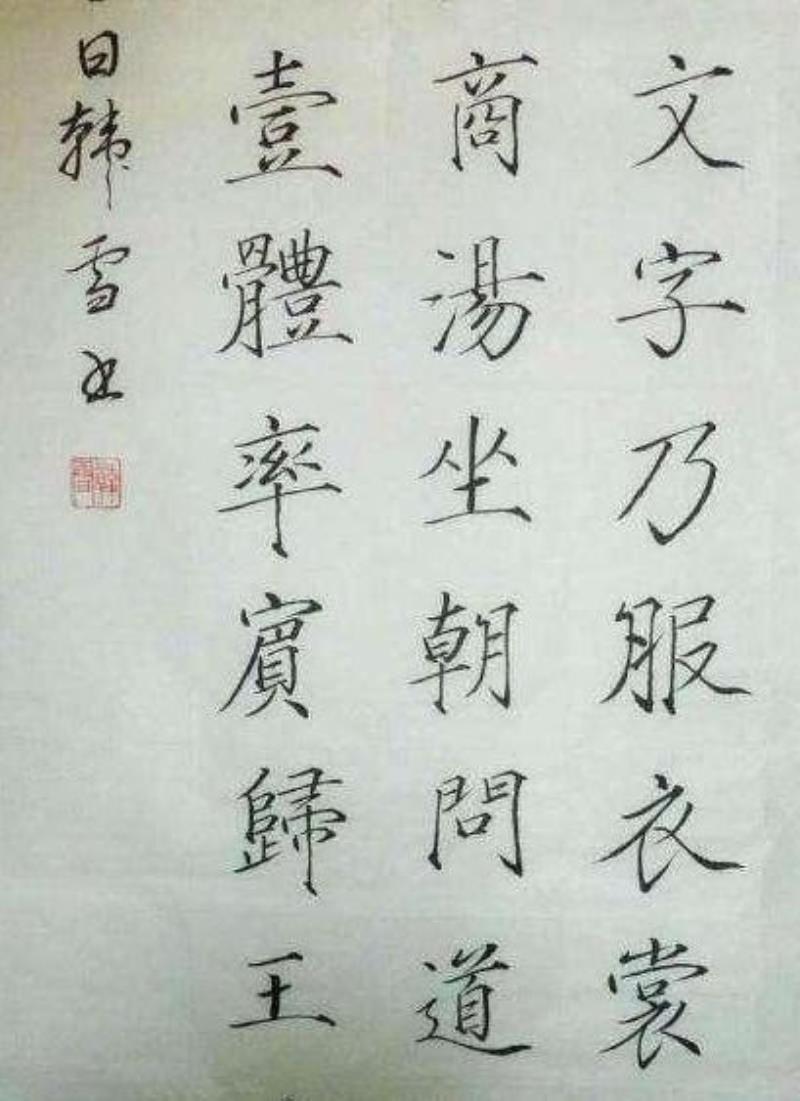 文字乃服衣裳
商湯坐朝問道
壹體率賓歸王
日韩雪书